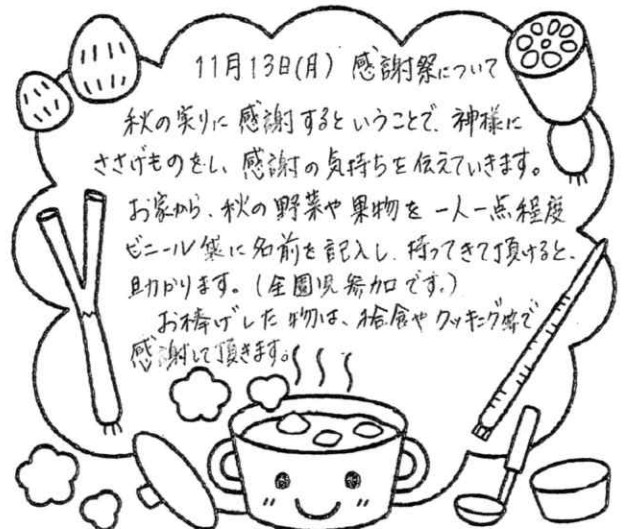 11月13日(月) 感謝祭について
秋の実りに感謝するということで、神様に
ささげものをし、感謝の気持ちを伝えていきます。
お家から、秋の野菜や果物を一人一点程度
ビニール袋に名前を記入し、持ってきて頂けると、
助かります。(全園児参加です。)
お捧げした物は、給食やクッキング等で
感謝して頂きます。